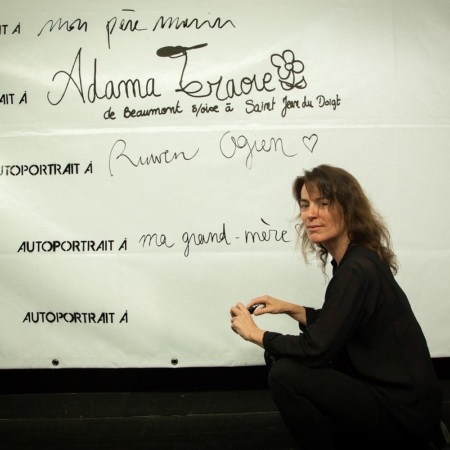 IT À mon père marin
AIT À Adama Traore
de Beaumont s/oise à Saint Jean du Doigt
AUTOPORTRAIT À Ruwen Ogien ♡
AUTOPORTRAIT À ma grand-mère
AUTOPORTRAIT À